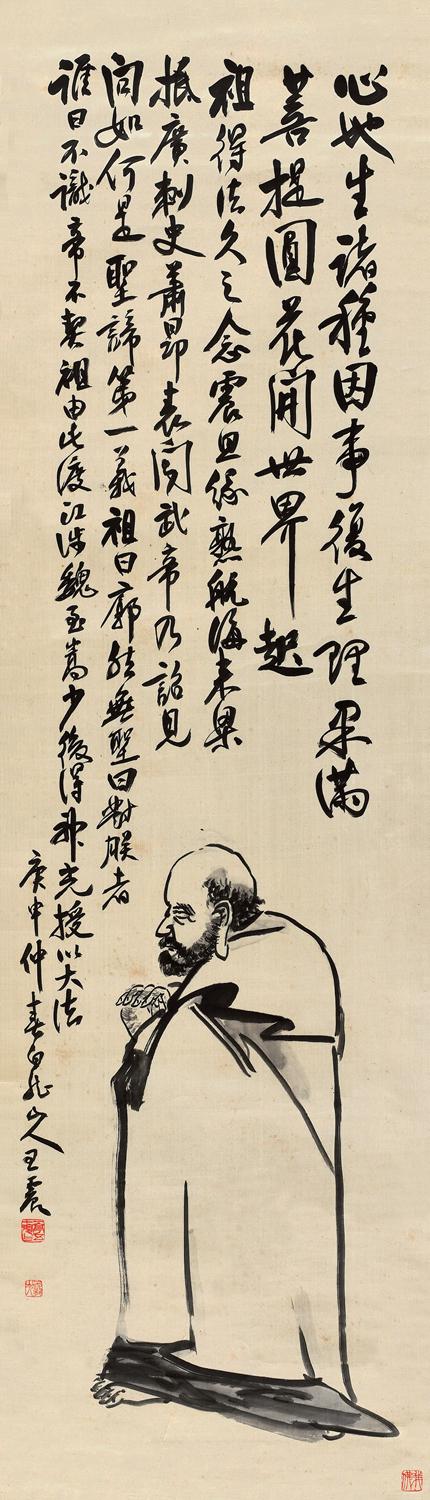 心地生諸種因事復生理果滿
菩提圓花開世界起
祖得法久之念震旦緣熟航海来粵
抵廣刺史蕭昂表聞武帝乃詔見
問如何是聖諦第一義祖曰廓然無聖曰對朕者
誰曰不識帝不契祖由此渡江涉魏至嵩少後得神光授以大法
庚申仲春白龍山人王震